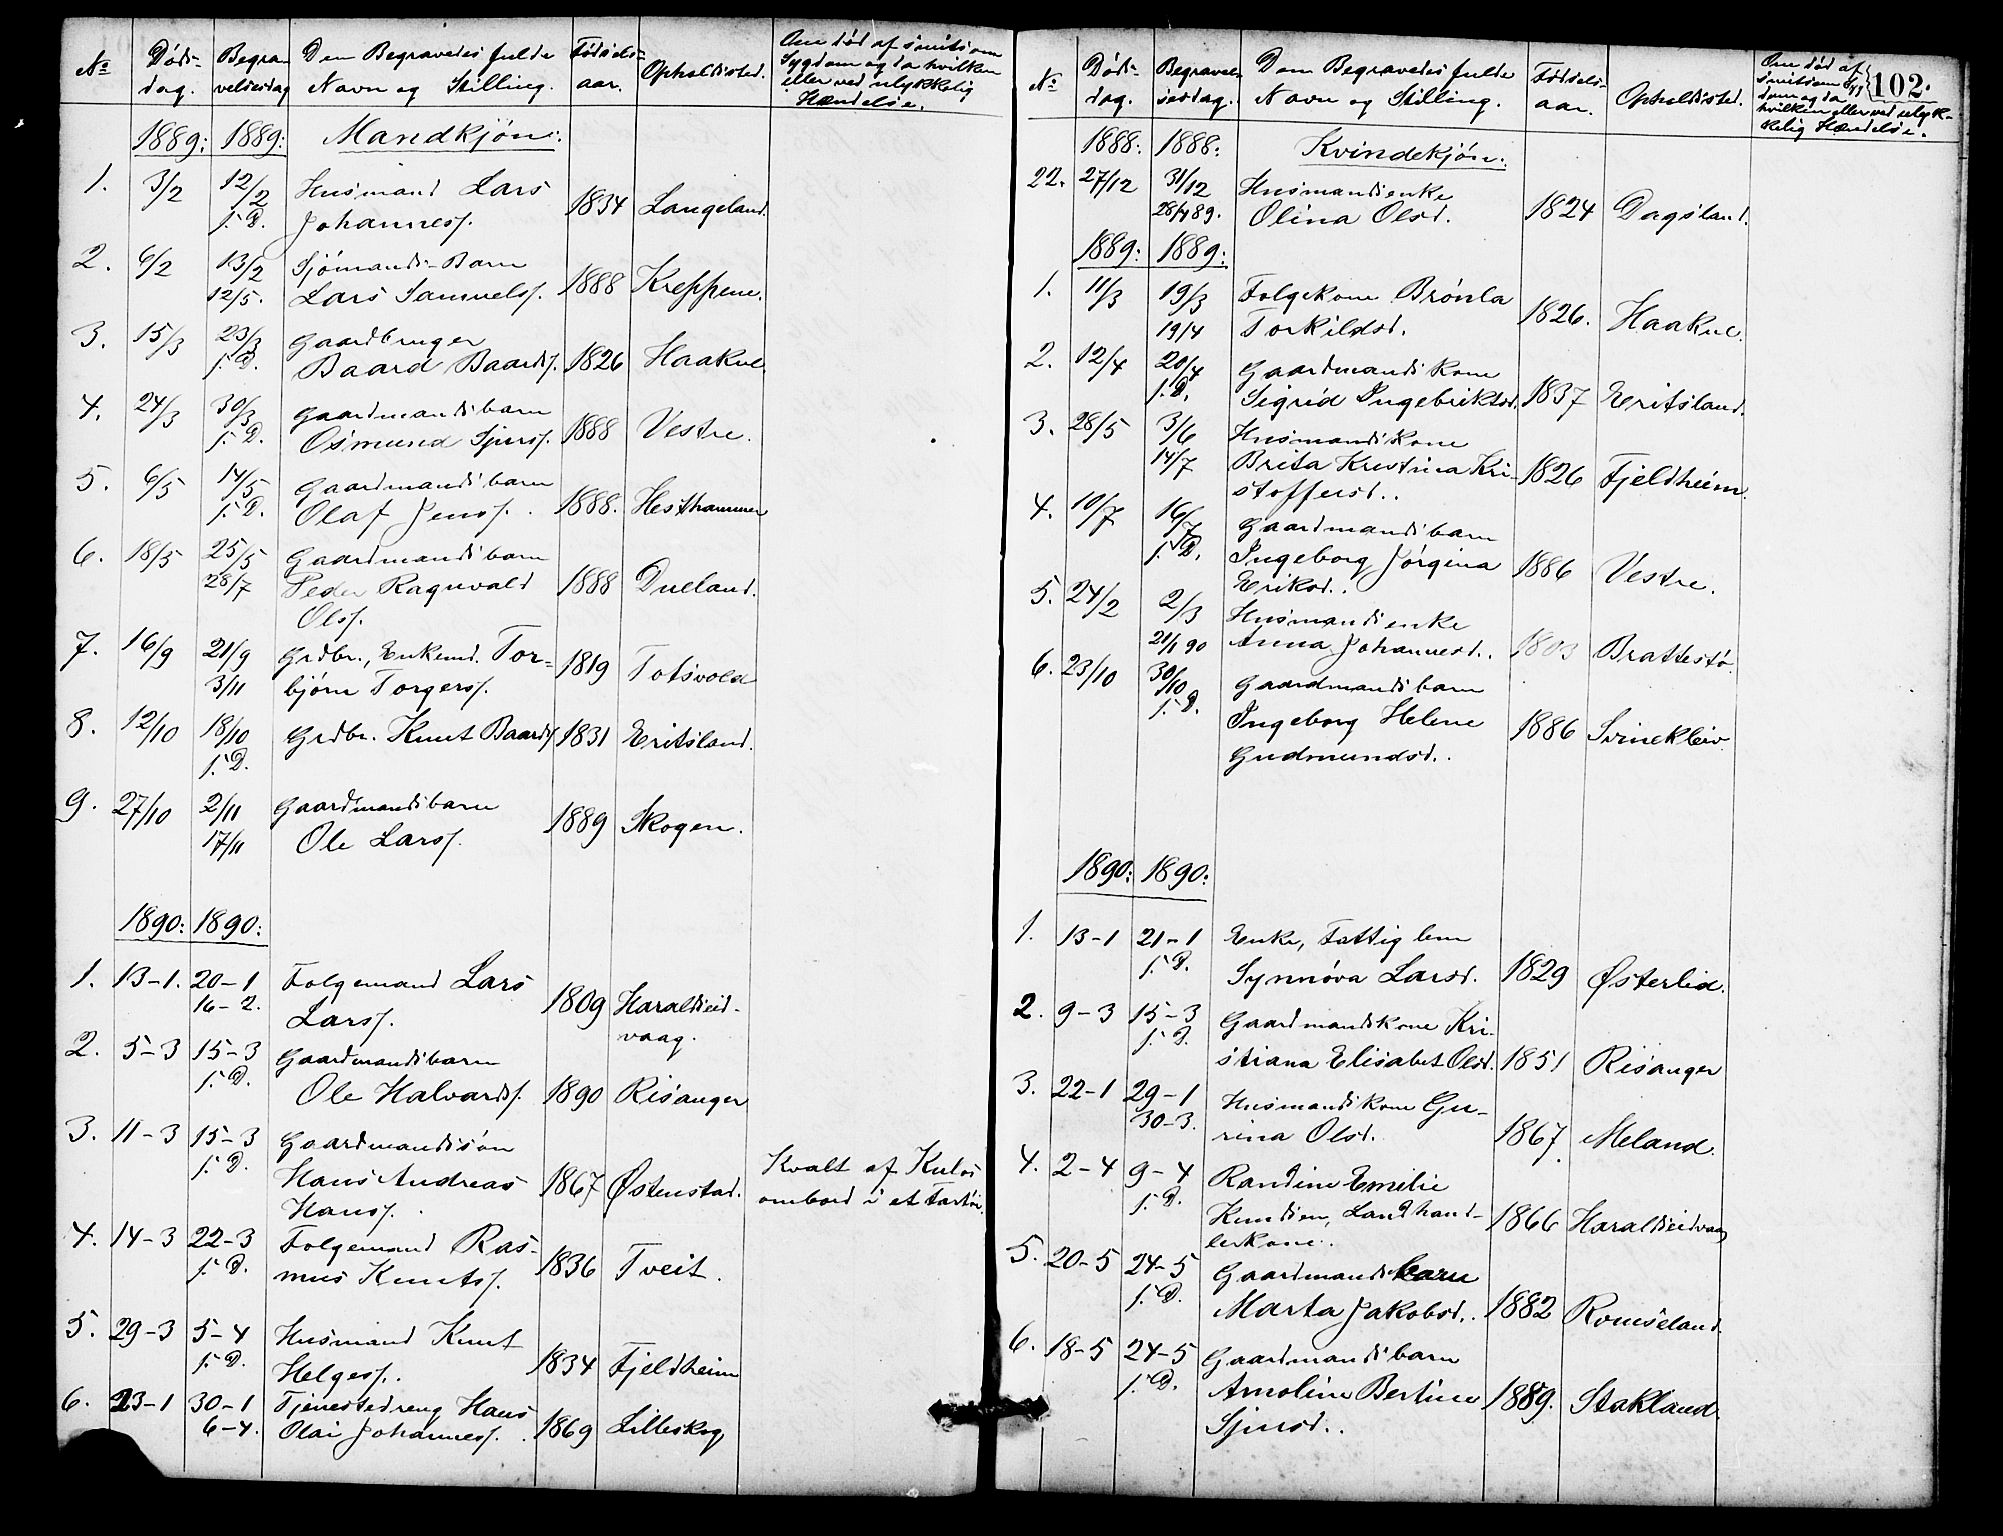 No Døds- Begra- Den Begravedes fulde Fødsels- Opholdssted. Om død af smitsom
dag. velsesdag Navn og Stilling. aar. Sygdom og da hvilken
eller ved ulykkelig
Hændelse.
1889: 1889: Mandkjøn:
1. 3/2 12/2 Husmand Lars
j. D. Johanness. 1834 Langeland.
2. 6/2 13/2 Sjømands-Barn
12/5. Lars Samuels. 1888 Kreppene.
3. 15/3 23/3 Gaardbruger
j. D. Baard Baards. 1826 Haakul.
4. 24/3 30/3 Gaardmandsbarn
j. D. Osmund Sjurs. 1888 Vestre.
5. 6/5 14/5 Gaardmandsbarn
j. D. Olaf Jens. 1888. Hesthammer
6. 18/5 25/5 Gaardmandsbarn
28/7 Peder Ragnvald 1888 Dueland.
Ols.
7. 16/9 21/9 Grdbr., Enkemd. Tor- 1819 Totsvold
3/11 bjørn Torgers.
8. 12/10 18/10 Grdbr. Knut Baards. 1831 Eritsland.
j. D.
9. 27/10 2/11 Gaardmandsbarn
17/11 Ole Lars. 1889 Skogen.
1890: 1890:
1. 13-1. 20-1 Folgemand Lars
16-2. Lars. 1809 Haraldseid-
vaag.
2. 5-3 15-3 Gaardmandsbarn
j. D. Ole Halvards. 1890 Risanger
3. 11-3 15-3 Gaardmandssøn
j. D. Hans Andreas 1867 Østenstad. Kvalt af Kulos
Hans. ombord i et Fartøi.
4. 14-3 22-3 Folgemand Ras-
j. D. mus Knuts. 1836 Tveit.
5. 29-3 5-4 Husmand Knut
j. D. Helges. 1834 Fjeldheim
6. 23-1 30-1 Tjenestedreng Hans
6-4. Olai Johanness. 1869 Lilleskog
No Døds- Begravel- Den Begravedes fulde Fødsels- Opholdssted. Om død af
dag. sesdag. Navn og Stilling. aar. smitsom Syg-
dom og da
hvilken eller ved ulyk-
kelig Hændelse.
102.
1888: 1888: Kvindekjøn:
22. 27/12 31/12 Husmandsenke
28/4 89. Olina Olsd. 1824 Dagsland.
1889: 1889:
1. 11/3 19/3 Folgekone Brønla
19/4 Torkildsd. 1826. Haakul.
2. 12/4 20/4 Gaardmandskone
j. D. Sigrid Ingebriktsd. 1837 Eritsland.
3. 28/5 3/6 Husmandskone
14/7 Brita Krestina Kri- 1826 Fjeldheim.
stoffersd.
4. 10/7 16/7 Gaardmandsbarn
j. D. Ingeborg Jørgina 1886 Vestre.
Eriksd.
5. 24/2 2/3 Husmandsenke
21/1 90 Anna Johannesd. 1803 Brattestø
6. 23/10 30/10 Gaardmandsbarn
j. D. Ingeborg Helene 1886 Svinekleiv
Gudmundsd.
1890: 1890:
1. 13-1 21-1 Enke, Fattiglem
j. D. Synnøva Larsd. 1829 Østerlid.
2. 9-3 15-3 Gaardmandskone Kri-
j. D. stiana Elisabet Olsd. 1851 Risanger
3. 22-1 29-1 Husmandskone Gu-
30-3. rina Olsd. 1867. Meland.
4. 2-4 9-4 Randine Emilie
j. D. Knudsen, Landhand- 1866 Haraldseidvaag
lerkone.
5. 20-5 24-5 Gaardmandsbarn
j. D. Marta Jakobsd. 1882 Romseland.
6. 18-5 24-5 Gaardmandsbarn
j. D. Amoline Bertine 1889. Stakland.
Sjursd.